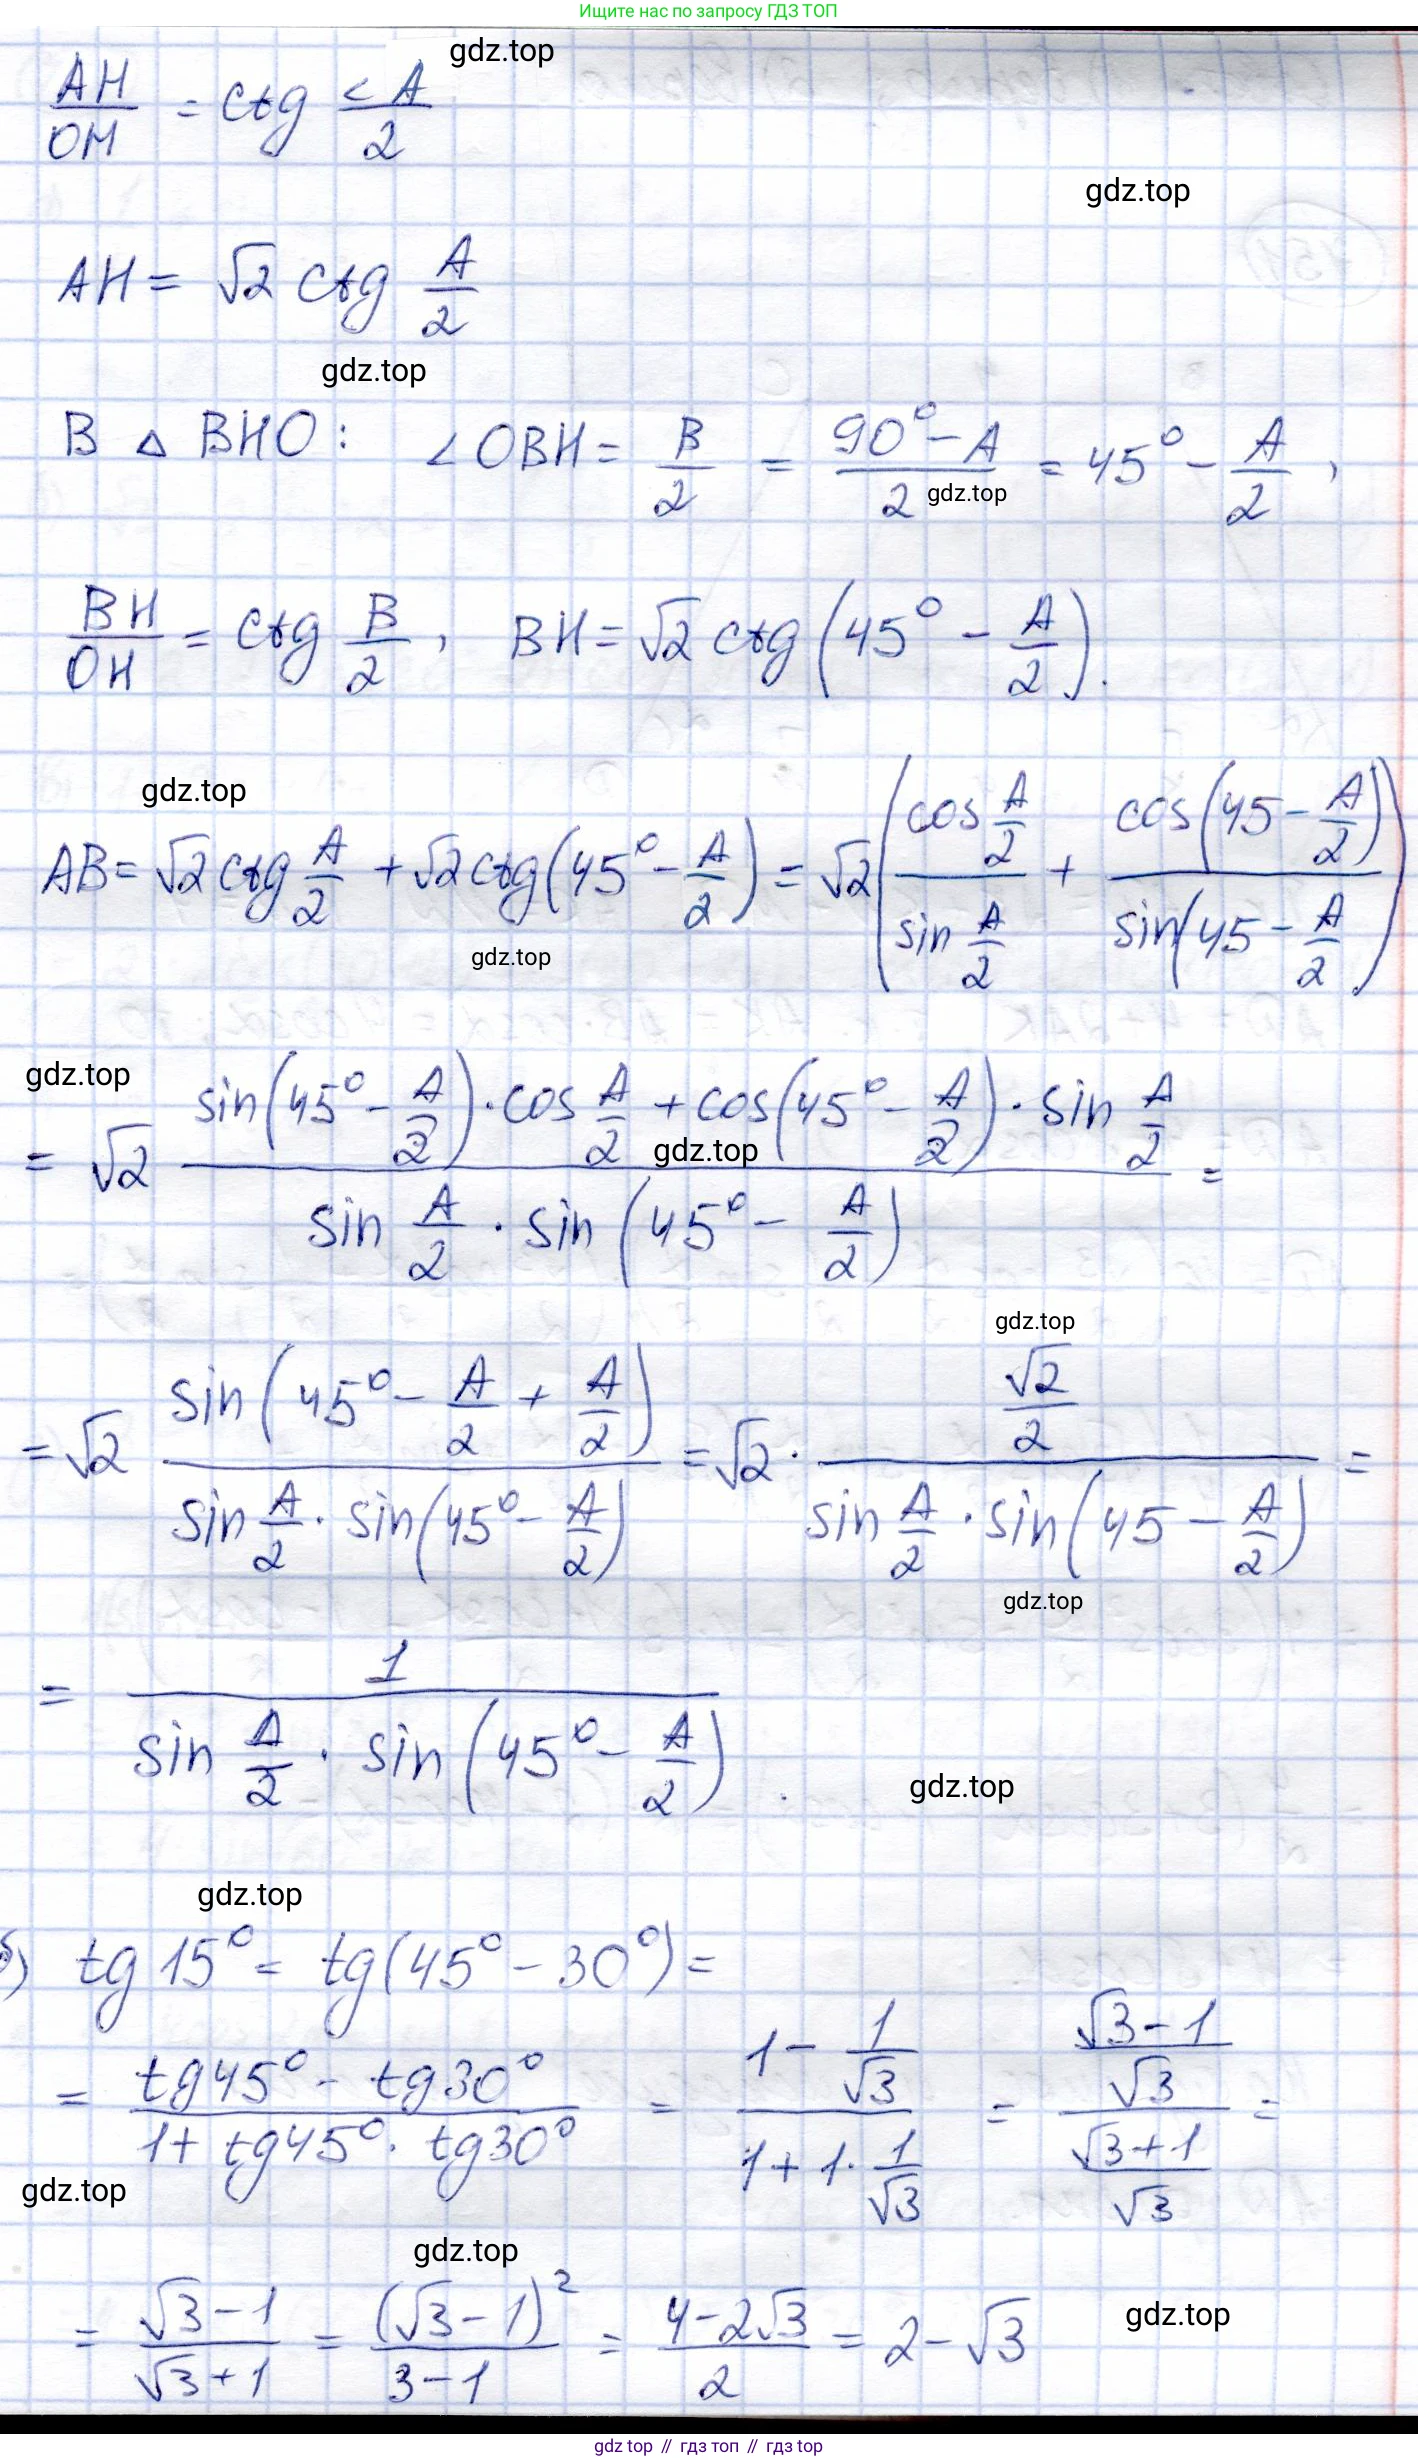 Ищите нас по запросу ГДЗ ТОП
gdz.top
AH/OM = ctg <A/2
gdz.top
AH = √2 ctg A/2
gdz.top
В △ BHO: ∠OBH = B/2 = (90° − A)/2 = 45° − A/2,
gdz.top
BH/OH = ctg B/2, BH = √2 ctg (45° − A/2).
gdz.top
AB = √2 ctg A/2 + √2 ctg (45° − A/2) = √2 (cos A/2 / sin A/2 + cos(45 − A/2) / sin(45 − A/2))
gdz.top
gdz.top
= √2 (sin(45° − A/2) · cos A/2 + cos(45° − A/2) · sin A/2) / (sin A/2 · sin (45° − A/2)) =
gdz.top
gdz.top
= √2 sin(45° − A/2 + A/2) / (sin A/2 · sin(45° − A/2)) = √2 · (√2/2) / (sin A/2 · sin(45 − A/2)) =
gdz.top
= 1 / (sin A/2 · sin (45° − A/2)).
gdz.top
gdz.top
б) tg 15° = tg(45° − 30°) =
= (tg45° − tg30°) / (1 + tg45° · tg30°) = (1 − 1/√3) / (1 + 1 · 1/√3) = ((√3 − 1)/√3) / ((√3 + 1)/√3) =
gdz.top
gdz.top
= (√3 − 1)/(√3 + 1) = (√3 − 1)²/(3 − 1) = (4 − 2√3)/2 = 2 − √3
gdz.top
gdz top // гдз топ // gdz top